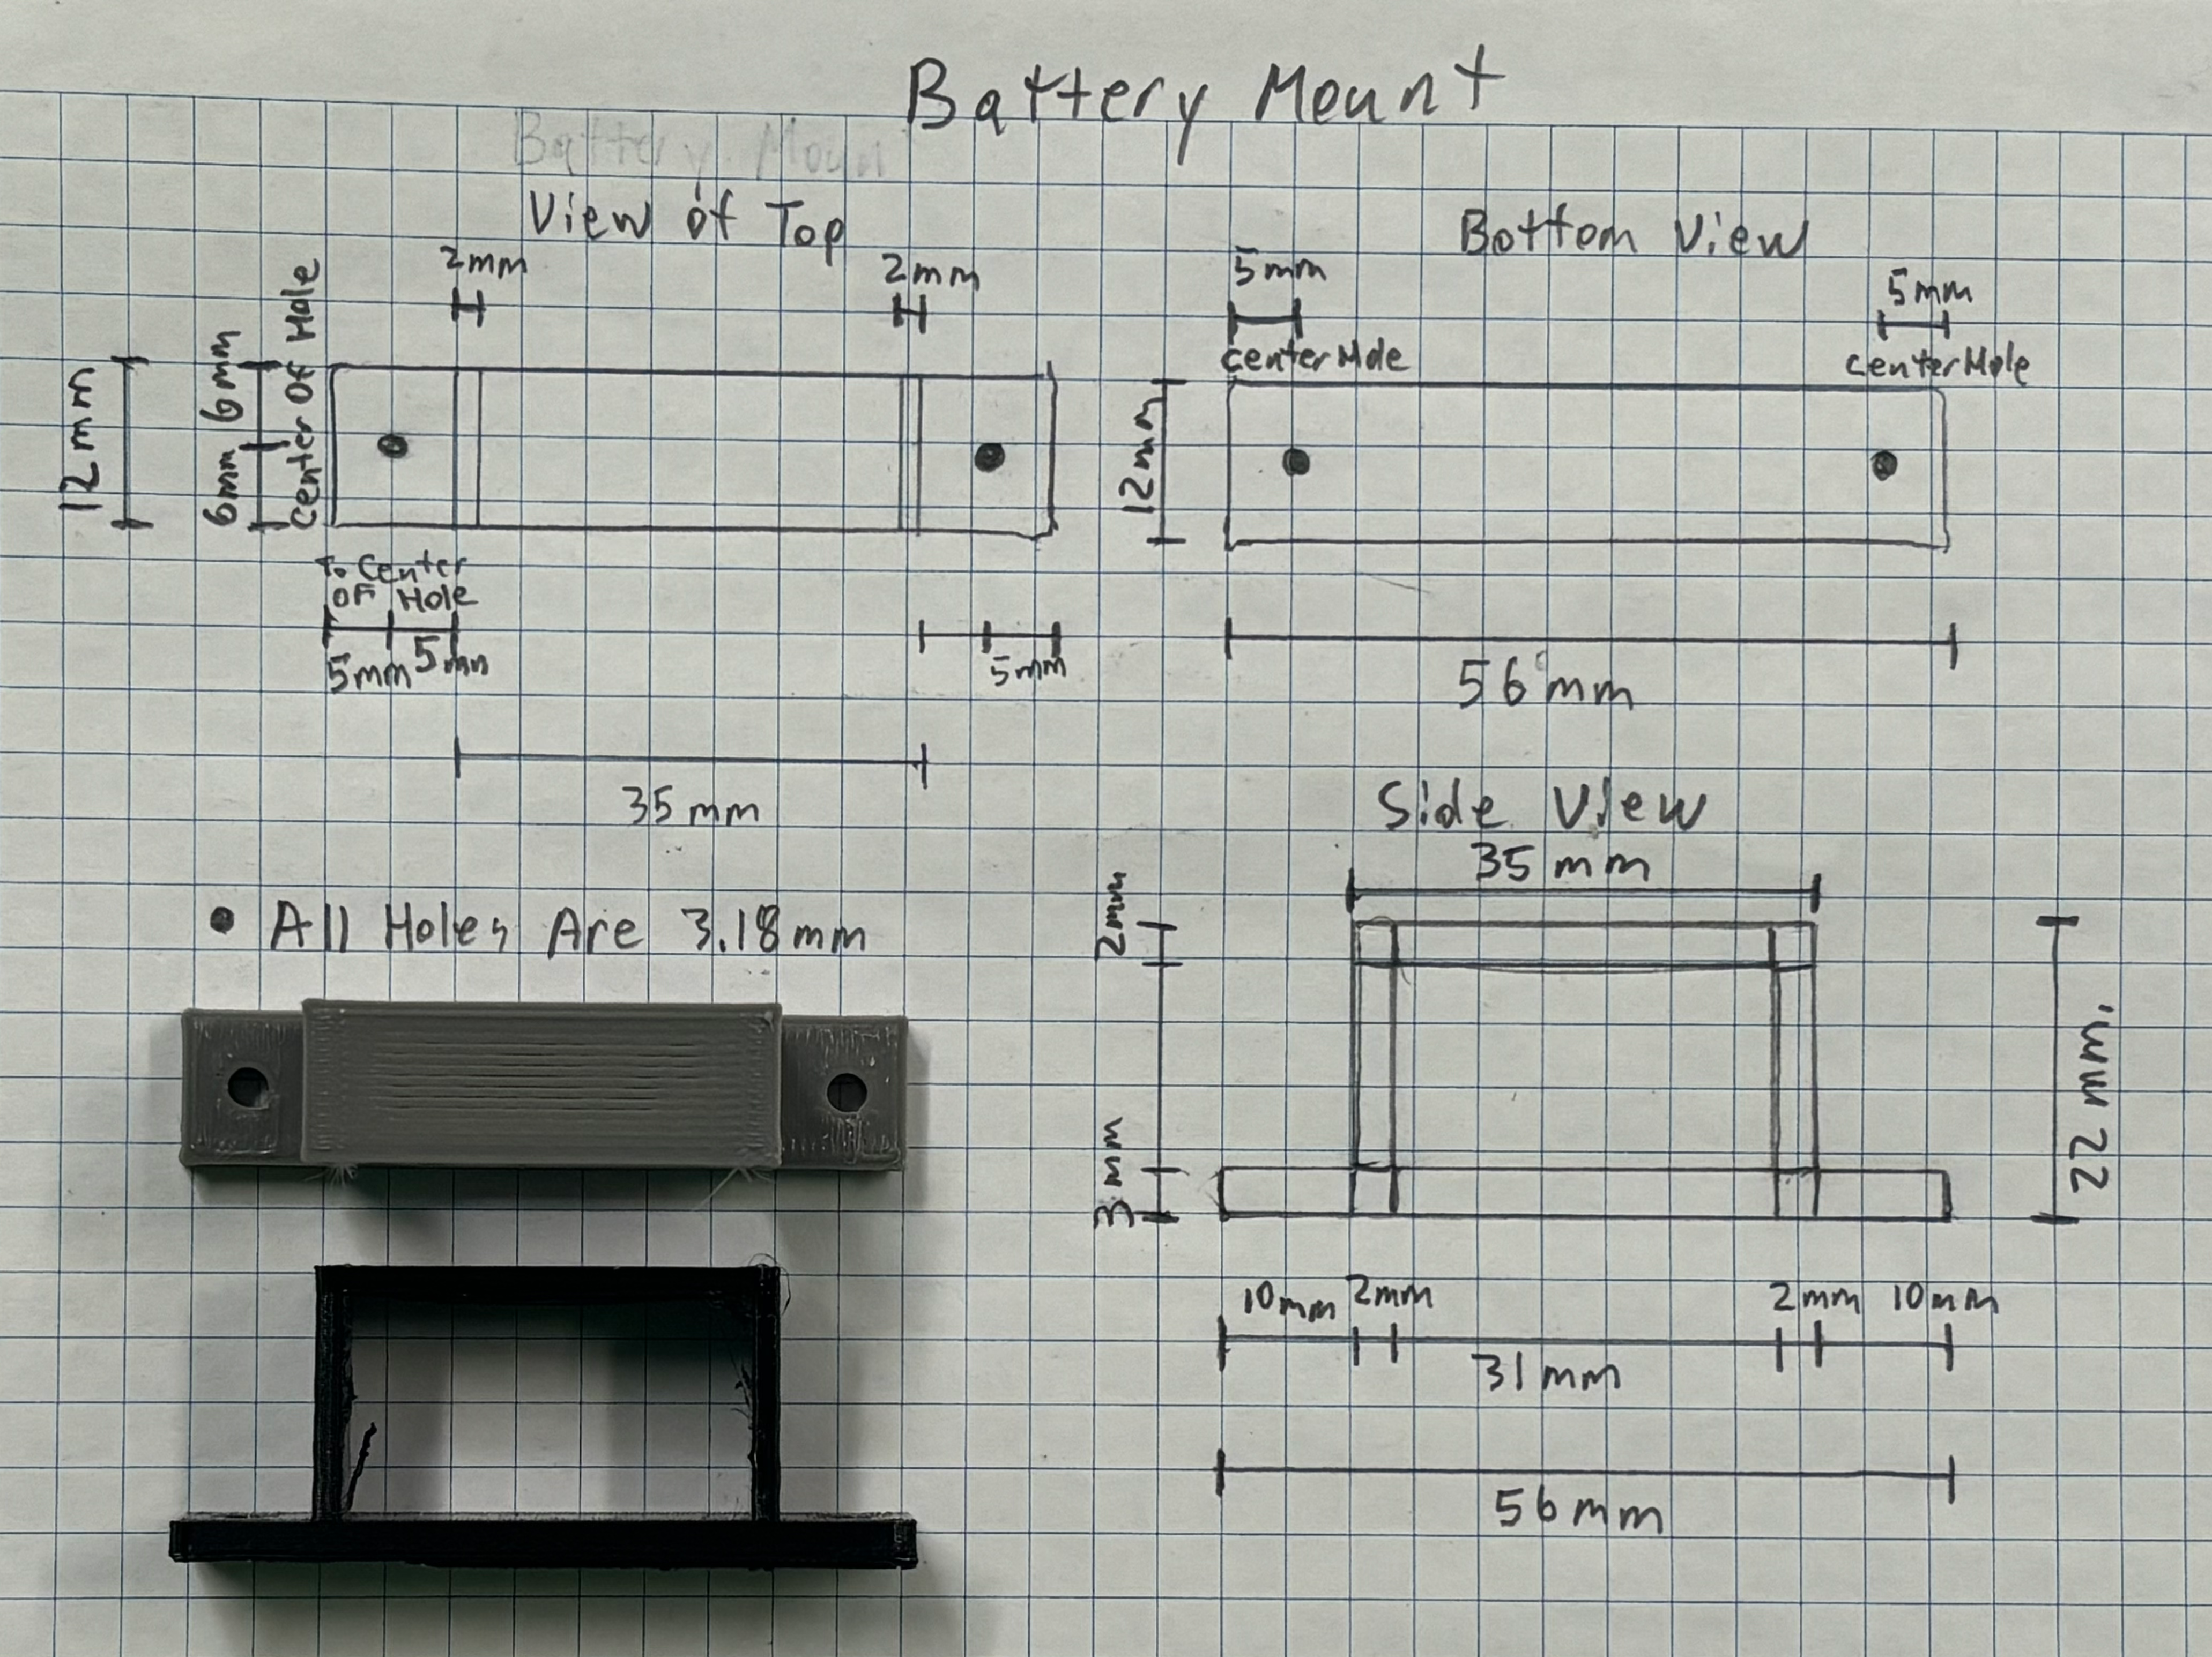 Battery Mount
Battery Moun
View of Top
2mm
2mm
12mm
6mm 6mm
Center Of Hole
To Center
OF Hole
5mm 5mm
5mm
35mm
Bottom View
5mm
centerHole
5mm
centerHole
12mm
56mm
• All Holes Are 3.18mm
Side View
35mm
2mm
3mm
22mm.
10mm 2mm
2mm 10mm
31mm
56mm